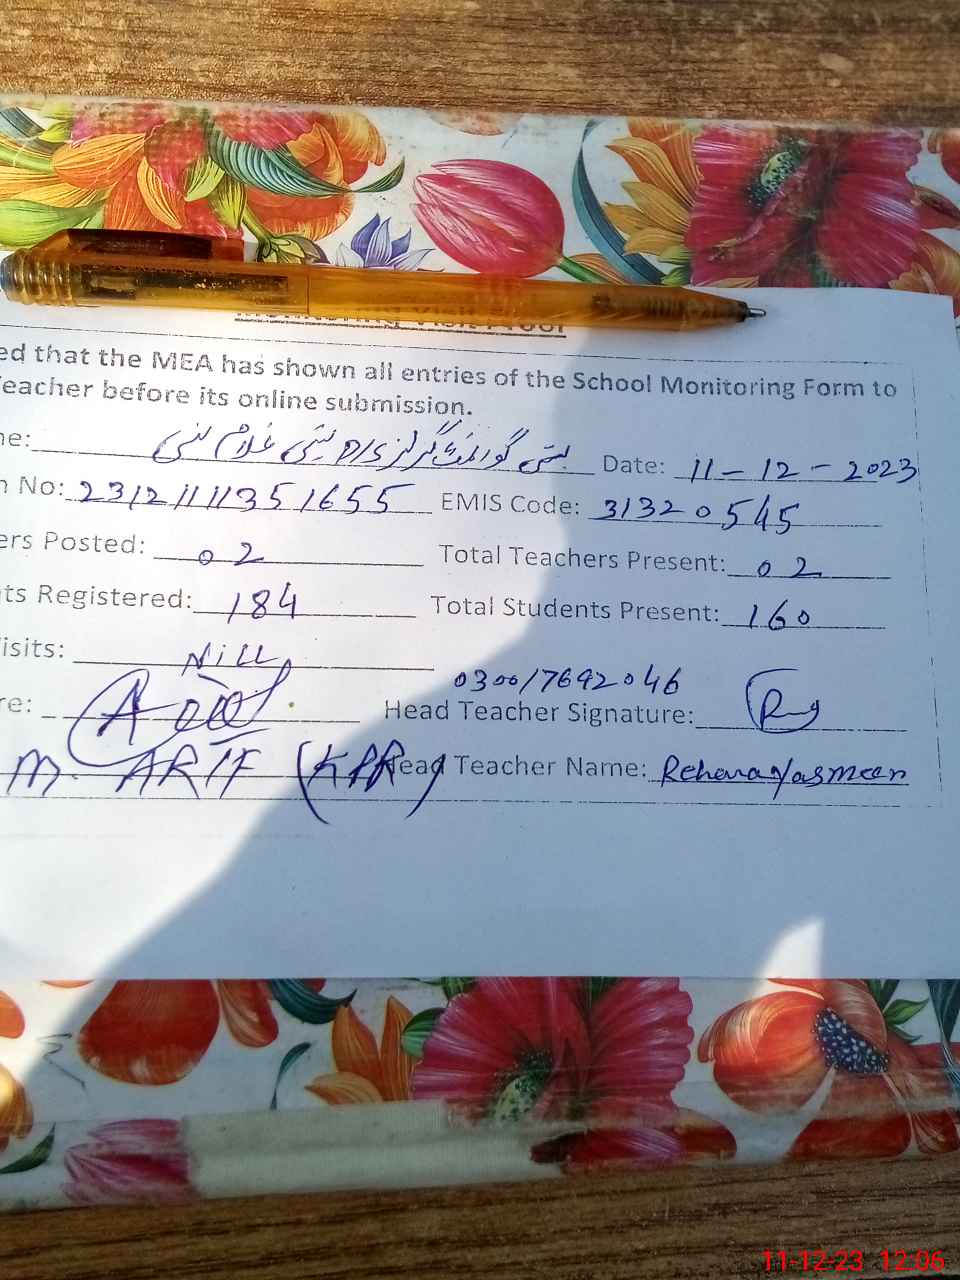 Monitoring Visit Proof
ed that the MEA has shown all entries of the School Monitoring Form to
eacher before its online submission.
ne: گورنمنٹ گرلز P/S بستی غلام نبی Date: 11-12-2023
n No: 23121111351655 EMIS Code: 31320545
ers Posted: 02 Total Teachers Present: 02
ts Registered: 184 Total Students Present: 160
isits: Nill
0300/7692046
re: Head Teacher Signature:
M. ARIF (KPR) Head Teacher Name: Rehana Yasmeen
11-12-23 12:06